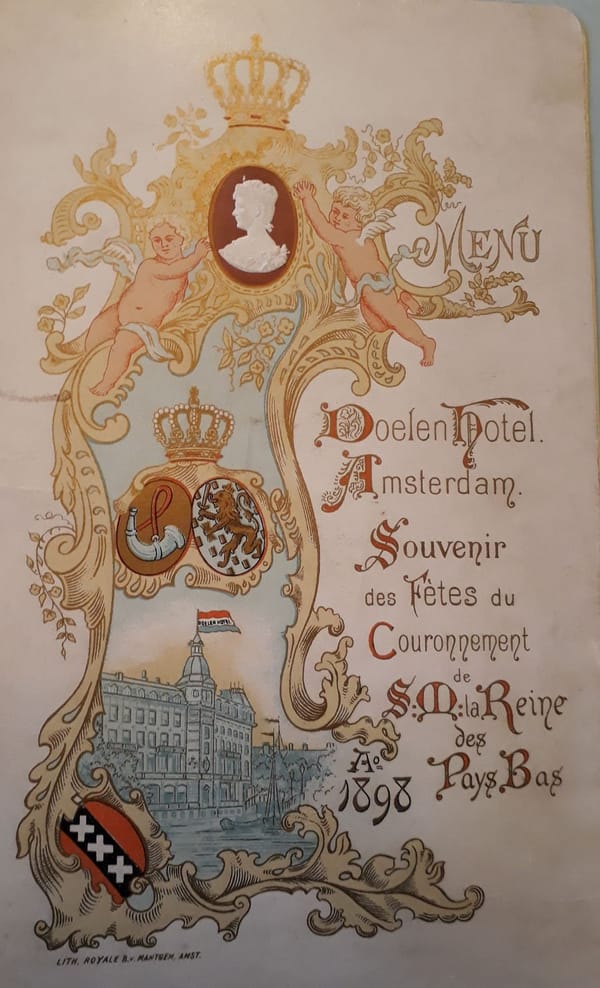 MENU
Doelen Hotel.
Amsterdam.
Souvenir
des Fêtes du
Couronnement
de
S:M:la Reine
des
Pays Bas
Ao
1898
DOELEN HOTEL
XXX
LITH, ROYALE B.v. MANTGEM, AMST.